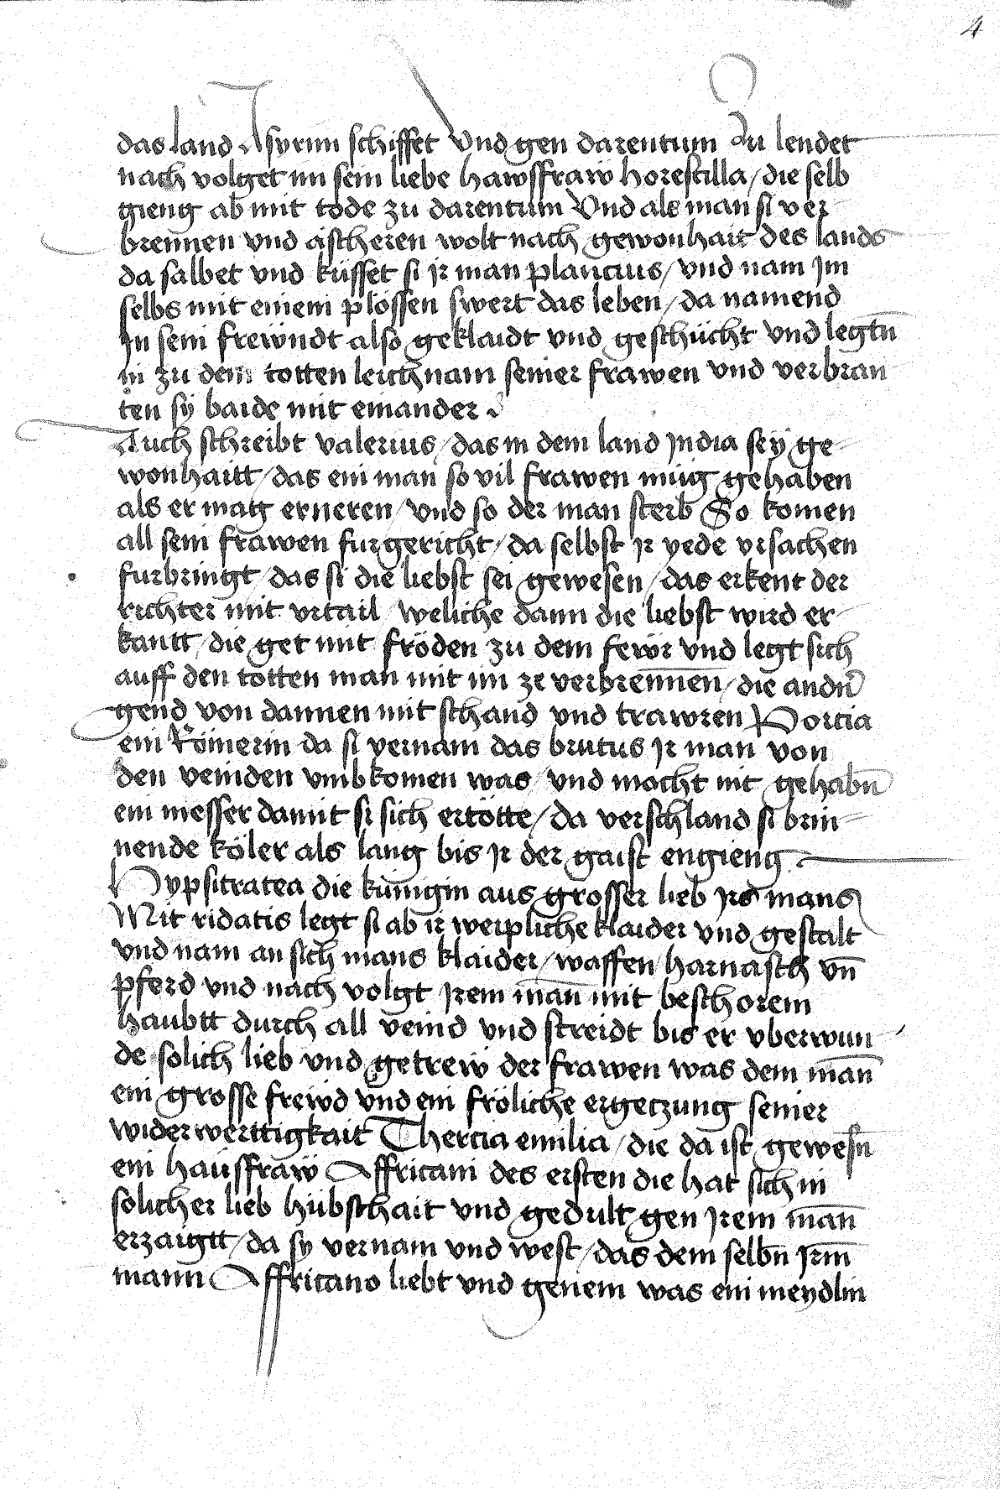 4
das land Asyrim schiffet Vnd gen darentum Zu lendet
nach volget im sein liebe hawsffraw horestilla / die selb
gieng ab mit tode zu darentum Vnd als man si ver-
brennen vnd äscheren wolt nach gewonhait des lands
da salbet vnd küsset si jr man plancius / vnd nam jm
selbs mit einem plossen swert das leben / da namend
In sein frewndt also geklaidt vnd geschücht vnd legtn̄
in zu dem totten leichnam seiner frawen vnd verbran-
ten sÿ baide mit einander
Auch schreibt valerius / das in dem land jndia seÿ ge-
wonhaitt / das ein man so vil frawen müg gehaben
als er mag erneren / vnd so der man sterb So komen
all sein frawen fur gericht / da selbst jr yede vrsachen
furbringt / das si die liebst sei gewesen / das erkent der
richter mit vrtail / weliche dann die liebst wird er-
kantt / die get mit fröden zu dem fewr vnd legt sich
auff den totten man mit im ze verbrennen̄ / die andn̄
gend von dannen mit schand vnd trawren Portia
ein Römerin da si vernam das brutus jr man von
den veinden vmbkomen was / vnd mocht nit gehabn̄
ein messer damit si sich ertötte / da verschland si brin-
nende köler als lang bis jr der gaist engieng
Hypsitratea die kunigin aus grosser lieb jrs mans
Mit ridatis legt si ab ir weipliche klaider vnd gestalt
vnd nam an sich mans klaider / waffen harnasch vn̄
pferd vnd nach volgt jrem man̄ mit beschorem
haubtt durch all veind vnd streidt bis er vberwun-
de solich lieb vnd getrew der frawen was dem man̄
ein grosse frewd vnd ein fröliche ergetzung seiner
widerwerttigkait Thercia emilia / die da ist gewesn̄
ein haüsffraw Affricani des ersten die hat sich in
solicher lieb hübschait vnd gedult gen jrem man̄
erzaigtt / da sy vernam vnd west / das dem selbn̄ jrm̄
mann Affricano liebt vnd genem was ein meydlin